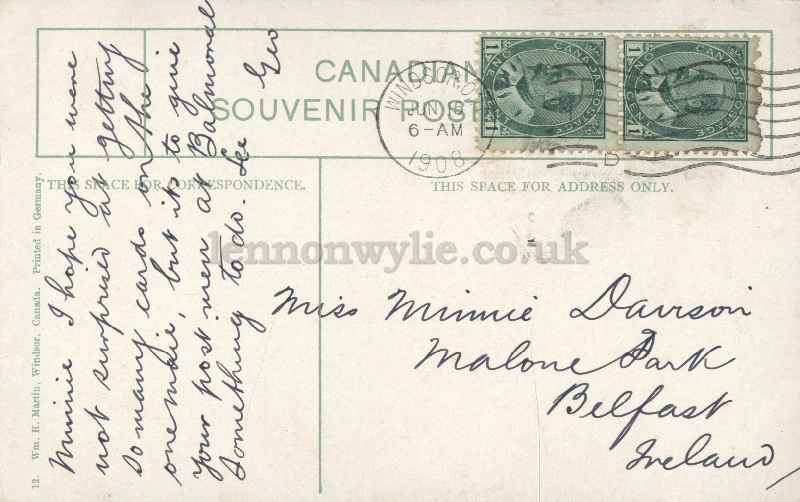 CANADIAN
SOUVENIR POST
WINDSOR, ONT.
JUN 18
6-AM
1908
D
CANADA POSTAGE
ONE CENT
1 1
CANADA POSTAGE
ONE CENT
1 1
THIS SPACE FOR CORRESPONDENCE.
THIS SPACE FOR ADDRESS ONLY.
Minnie I hope you were
not surprised at getting
so many cards on the
one maie, but its to give
your post men at Balmoral
Something to do. See Geo
Miss Minnie Davison
Malone Park
Belfast
Ireland
12. Wm. H. Martin, Windsor, Canada. Printed in Germany.
lennonwylie.co.uk